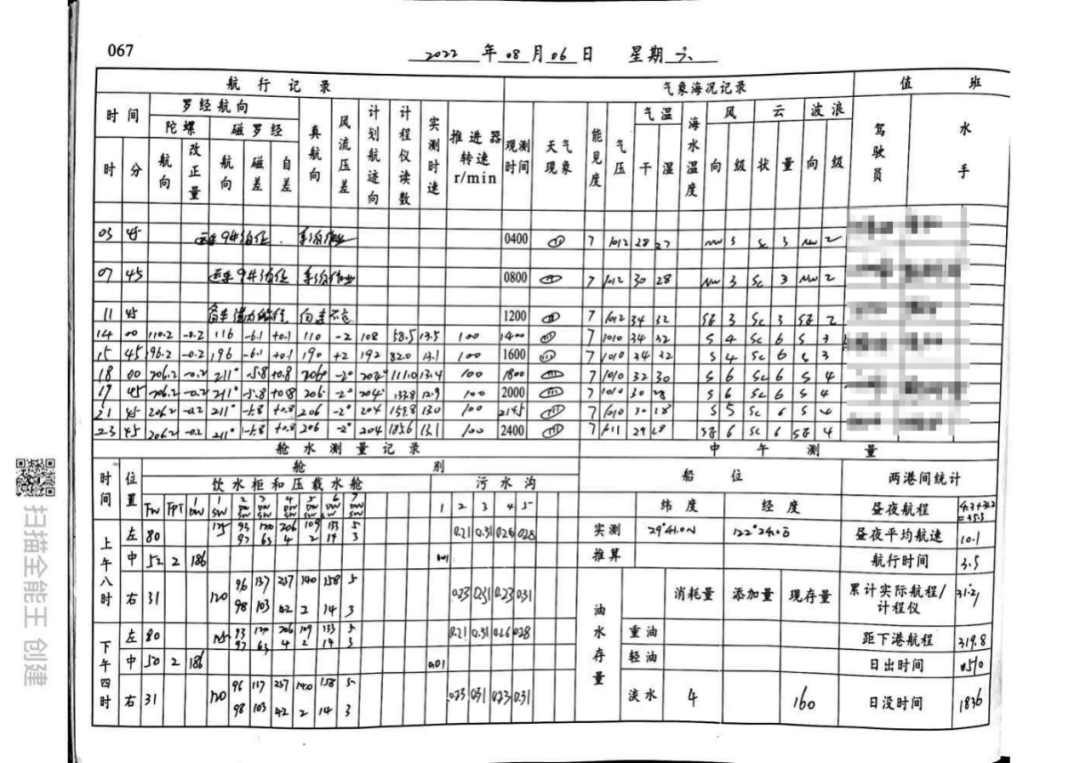 067
2022 年 08 月 06 日 星期 六
航行记录 气象海况记录 值 班
时间 罗经航向 真航向 风流压差 计划航迹向 计程仪读数 实测时速 推进器转速 r/min 观测时间 天气现象 能见度 气压 气温 海水温度 风 云 波浪 驾驶员 水手
陀螺 磁罗经
时 分 航向 改正量 航向 磁差 自差 干 湿 向 级 状 量 向 级
03 45 0400 7 1012 28 27 NW 3 Sc 3 NW 2
07 45 0800 7 1012 30 28 NW 3 Sc 3 NW 2
11 45 1200 7 1012 34 32 SE 3 Sc 3 SE 2
14 00 110.2 -0.2 116 -6.1 +0.1 110 -2 108 58.5 13.5 100 1400 7 1010 34 32 S 4 Sc 6 S 3
15 45 196.2 -0.2 196 -6.1 +0.1 190 +2 192 82.0 13.1 100 1600 7 1010 34 32 S 4 Sc 6 S 3
18 00 206.2 -0.2 211° -5.8 +0.8 206 -2° 204° 111.0 13.4 100 1800 7 1010 32 30 S 6 Sc 6 S 4
45 206.2 -0.2 211° -5.8 +0.8 206 -2° 204° 133.8 12.9 100 2000 7 1010 30 28 S 6 Sc 6 S 4
21 45 206.2 -0.2 211° -5.8 +0.8 206 -2° 204 159.8 13.0 100 2145 7 1010 30 28 S 5 Sc 6 S 4
23 45 206.2 211° -5.8 +0.8 206 -2° 204 185.6 13.1 100 2400 7 1011 29 28 SE 6 Sc 6 SE 4
舱水测量记录 中午测量
时间 位置 舱 别 船位 两港间统计
饮水柜和压载水舱 污水沟
FW FPT 1 DW 1 SW 2 DW SW 3 DW SW 4 DW SW 5 DW SW 6 DW SW 7 DW SW 1 2 3 4 5
纬度 经度 昼夜航程
上午八时 左 80 125 93 120 206 109 133 5 0.21 0.31 0.26 0.28
97 63 4 2 14 3
实测 29°41.0N 122°24.0E 昼夜平均航速 10.1
中 52 2 186 0.01 推算 航行时间 3.5
右 31 120 96 137 237 140 158 5 0.23 0.31 0.23 0.31
98 103 42 2 14 3
油水存量 消耗量 添加量 现存量 累计实际航程/计程仪
下午四时 左 80 125 93 120 206 109 133 5 0.21 0.31 0.26 0.28
97 63 4 2 14 3
重油 距下港航程 319.8
中 50 2 186 0.01 轻油 日出时间 0510
右 31 120 96 137 237 140 158 5 0.23 0.31 0.23 0.31
98 103 42 2 14 3
淡水 4 160 日没时间 1836
扫描全能王 创建